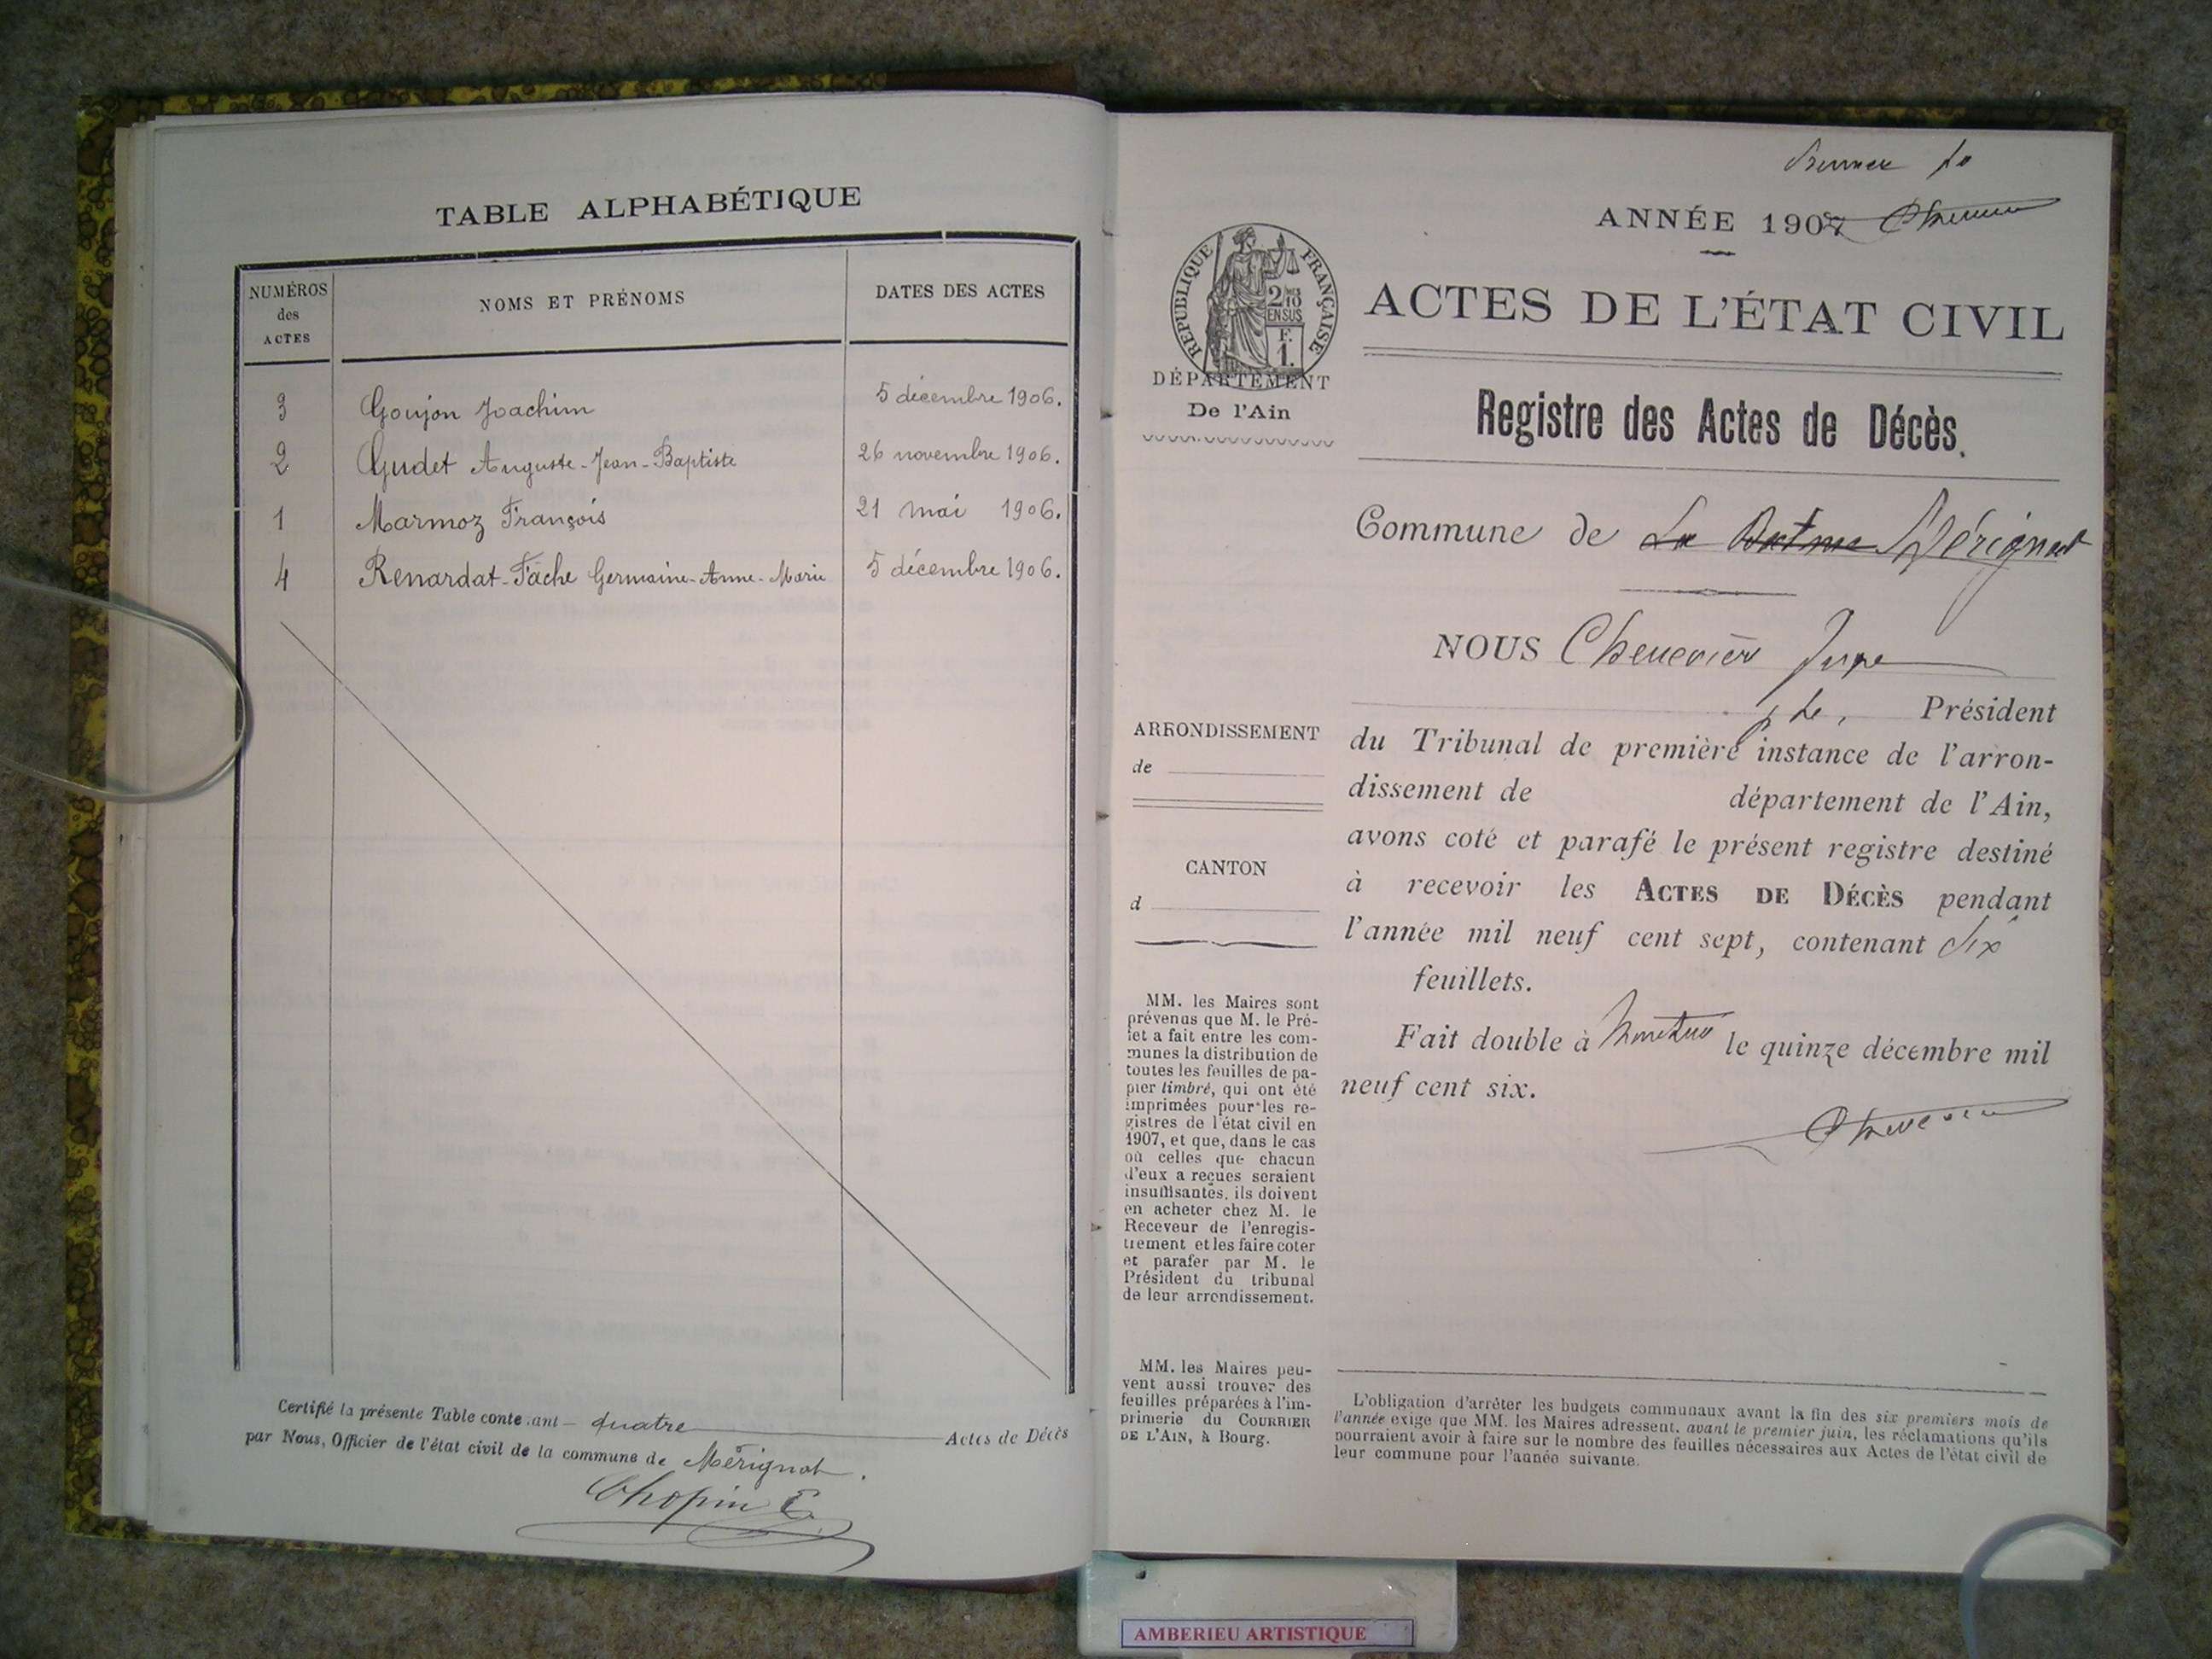 TABLE ALPHABÉTIQUE
NUMÉROS
des
ACTES
NOMS ET PRÉNOMS
DATES DES ACTES
3 Goujon Joachim 5 décembre 1906.
2 Gudet Auguste-Jean-Baptiste 26 novembre 1906.
1 Marmoz François 21 mai 1906.
4 Renardat-Fâche Germaine-Anne-Marie 5 décembre 1906.
Certifié la présente Table contenant quatre Actes de Décès
par Nous, Officier de l'état civil de la commune de Mérignat.
Chopin E.
ANNÉE 1907
RÉPUBLIQUE FRANÇAISE
2/10
EN SUS
F.
1.
ACTES DE L'ÉTAT CIVIL
DÉPARTEMENT
De l'Ain
Registre des Actes de Décès.
Commune de Mérignat
NOUS Chenevier Juge
Président
ARRONDISSEMENT
de
du Tribunal de première instance de l'arron-
dissement de département de l'Ain,
avons coté et parafé le présent registre destiné
CANTON
d
à recevoir les ACTES DE DÉCÈS pendant
l'année mil neuf cent sept, contenant Six
feuillets.
Fait double à le quinze décembre mil
neuf cent six.
MM. les Maires sont
prévenus que M. le Pré-
fet a fait entre les com-
munes la distribution de
toutes les feuilles de pa-
pier timbré, qui ont été
imprimées pour les re-
gistres de l'état civil en
1907, et que, dans le cas
où celles que chacun
d'eux a reçues seraient
insuffisantes, ils doivent
en acheter chez M. le
Receveur de l'enregis-
trement et les faire coter
et parafer par M. le
Président du tribunal
de leur arrondissement.
MM. les Maires peu-
vent aussi trouver des
feuilles préparées à l'im-
primerie du COURRIER
DE L'AIN, à Bourg.
L'obligation d'arrêter les budgets communaux avant la fin des six premiers mois de
l'année exige que MM. les Maires adressent, avant le premier juin, les réclamations qu'ils
pourraient avoir à faire sur le nombre des feuilles nécessaires aux Actes de l'état civil de
leur commune pour l'année suivante.
AMBERIEU ARTISTIQUE